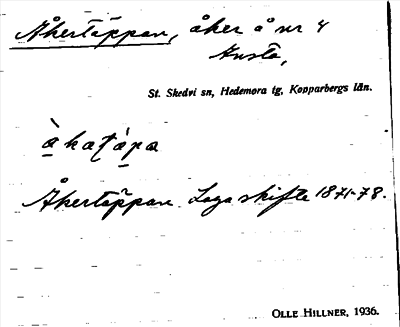 Åkertäppan, åker å nr 4
Knsta,
St. Skedvi sn, Hedemora tg, Kopparbergs län.
àkaʈápa
Åkertäppan Laga skifte 1871-78.
OLLE HILLNER, 1936.